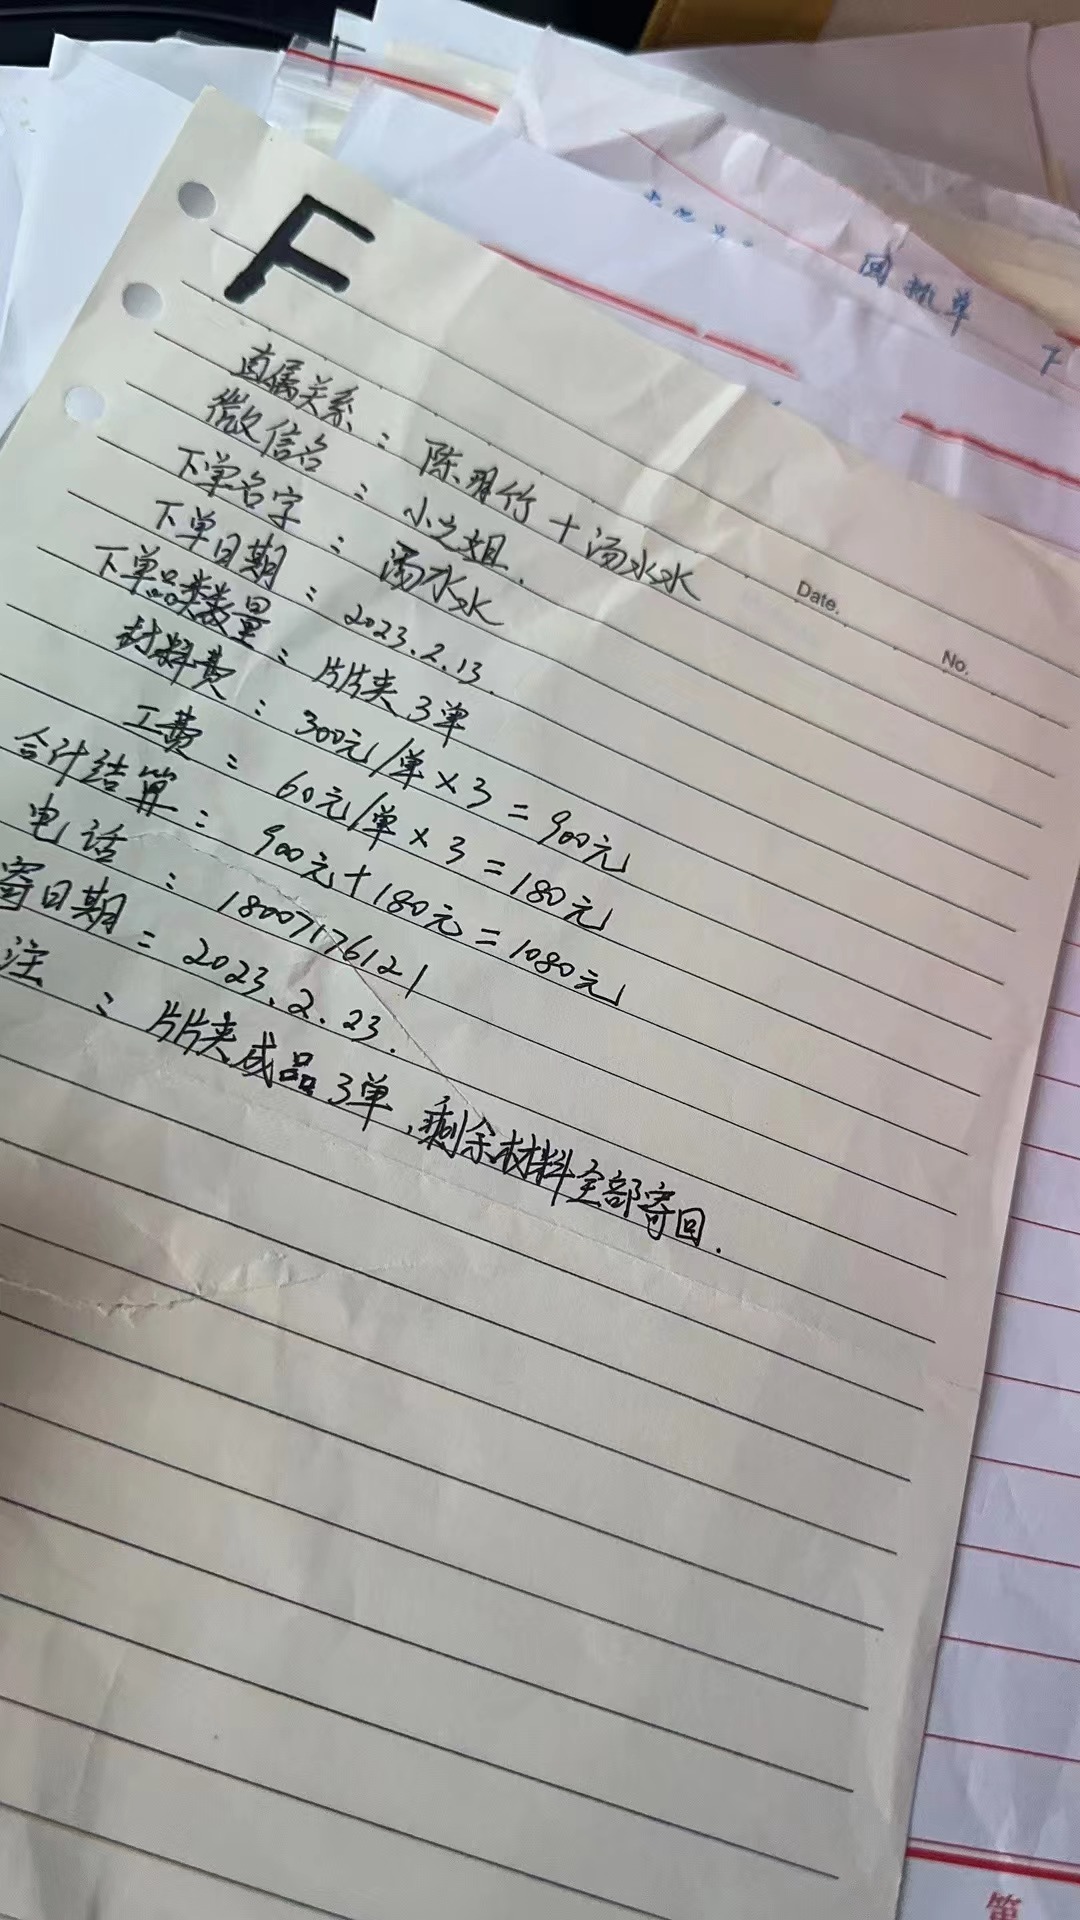 F
直属关系：陈明竹＋汤水水
微信名：小之姐.
下单名字：汤水水
下单日期：2023.2.13.
下单品类数量：片片夹3单
材料费：300元/单×3=900元
工费：60元/单×3=180元
合计结算：900元+180元=1080元
电话：18007176121
寄日期：2023.2.23.
注：片片夹成品3单,剩余材料全部寄回.
Date.
No.
回执单 F
第